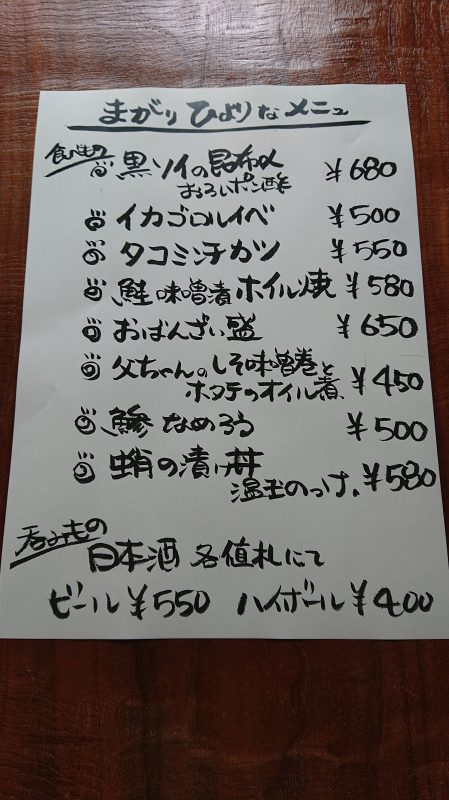 まがりひよりなメニュー
食べもの
黒ソイの昆布〆 ¥680
おろしポン酢
イカゴロルイベ ¥500
タコミンチカツ ¥550
鮭味噌漬ホイル焼 ¥580
おばんざい盛 ¥650
父ちゃんのしそ味噌巻と
ホタテのオイル煮 ¥450
鯵なめろう ¥500
蛸の漬け丼
温玉のっけ。 ¥580
呑みもの
日本酒 各値札にて
ビール ¥550 ハイボール ¥400